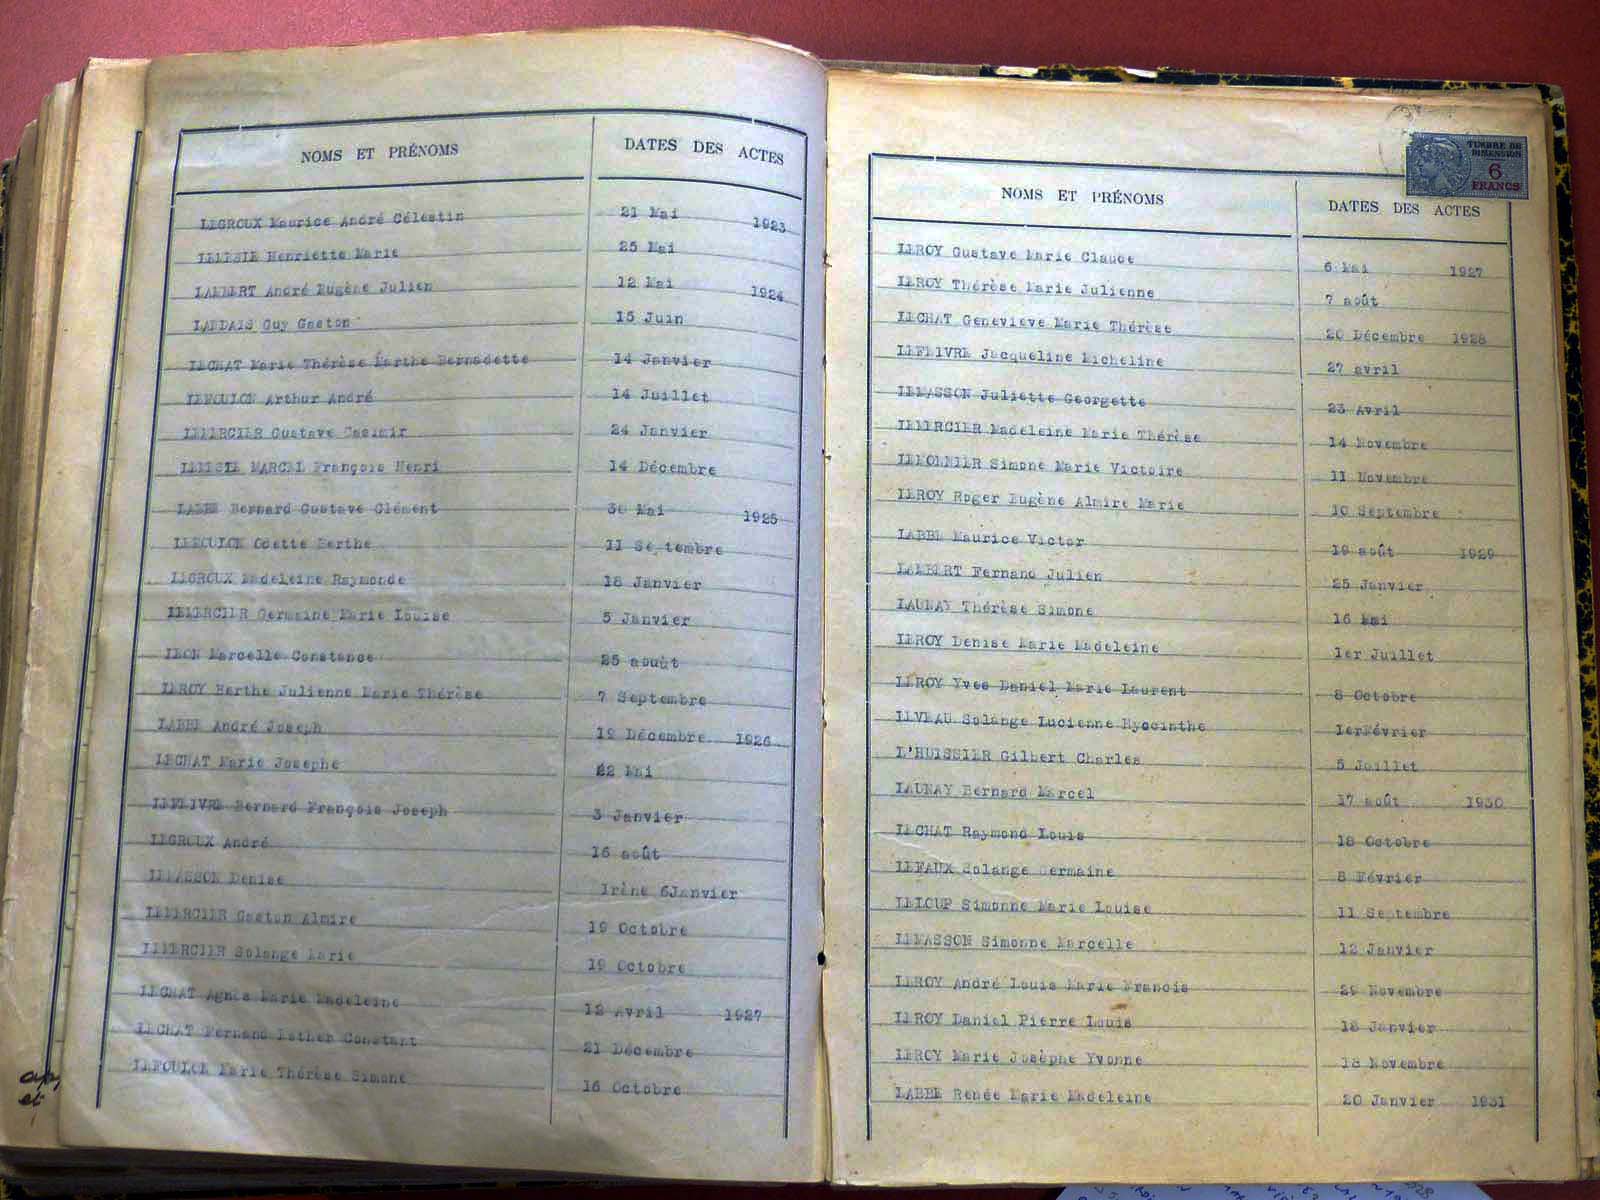 NOMS ET PRÉNOMS DATES DES ACTES
LEGROUX Maurice André Célestin 21 Mai 1923
LEMESLE Henriette Marie 25 Mai
LAMBERT André Eugène Julien 12 Mai 1924
LANDAIS Guy Gaston 15 Juin
LECHAT Marie Thérèse Marthe Bernadette 14 Janvier
LEMOULON Arthur André 14 Juillet
LEMERCIER Gustave Casimir 24 Janvier
MARCEL François Henri 14 Décembre
LABBE Bernard Gustave Clément 30 Mai 1925
Odette Berthe 11 Septembre
LEGROUX Madeleine Raymonde 18 Janvier
LEMERCIER Germaine Marie Louise 5 Janvier
LEON Marcelle Constance 25 aouùt
LEROY Berthe Julienne Marie Thérèse 7 Septembre
LABBE André Joseph 19 Décembre 1926
LECHAT Marie Josephe 22 Mai
LEFEIVRE Bernard François Joseph 3 Janvier
LEGROUX André 16 août
LEMASSON Denise Irène 6Janvier
LEMERCIER Gaston Almire 19 Octobre
LEMERCIER Solange Marie 19 Octobre
LECHAT Agnès Marie Madeleine 12 Avril 1927
LECHAT Fernand Esther Constant 21 Décembre
Marie Thérèse Simone 16 Octobre
et
TIMBRE DE
DIMENSION
6
FRANCS
NOMS ET PRÉNOMS DATES DES ACTES
LEROY Gustave Marie Claude 6 Mai 1927
LEROY Thérèse Marie Julienne 7 août
LECHAT Geneviève Marie Thérèse 20 Décembre 1928
LEFEIVRE Jacqueline Micheline 27 avril
LEMASSON Juliette Georgette 23 Avril
LEMERCIER Madeleine Marie Thérèse 14 Novembre
LEMONNIER Simone Marie Victoire 11 Novembre
LEROY Roger Eugène Almire Marie 10 Septembre
LABBE Maurice Victor 19 août 1929
LAMBERT Fernand Julien 25 Janvier
LAUNAY Thérèse Simone 16 Mai
LEROY Denise Marie Madeleine 1er Juillet
LEROY Yves Daniel Marie Laurent 8 Octobre
LEVEAU Solange Lucienne Hyccinthe 1erFévrier
L'HUISSIER Gilbert Charles 5 Juillet
LAUNAY Bernard Marcel 17 août 1930
LECHAT Raymond Louis 18 Octobre
LEFAUX Solange Germaine 8 Février
LELOUP Simonne Marie Louise 11 Septembre
LEMASSON Simonne Marcelle 12 Janvier
LEROY André Louis Marie Francis 29 Novembre
LEROY Daniel Pierre Louis 18 Janvier
LEROY Marie Josèphe Yvonne 18 Novembre
LABBE Renée Marie Madeleine 20 Janvier 1931